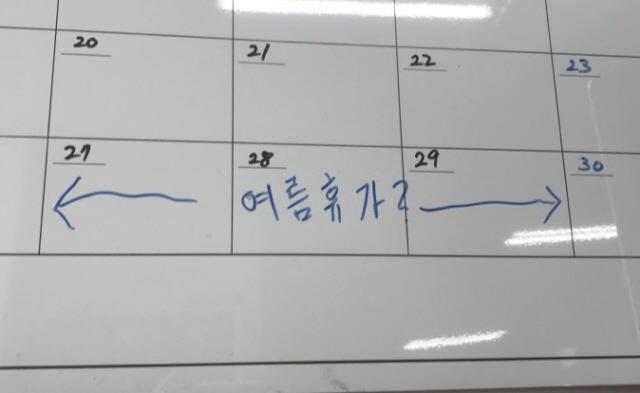 20 21 22 23
27 28 29 30
여름휴가?